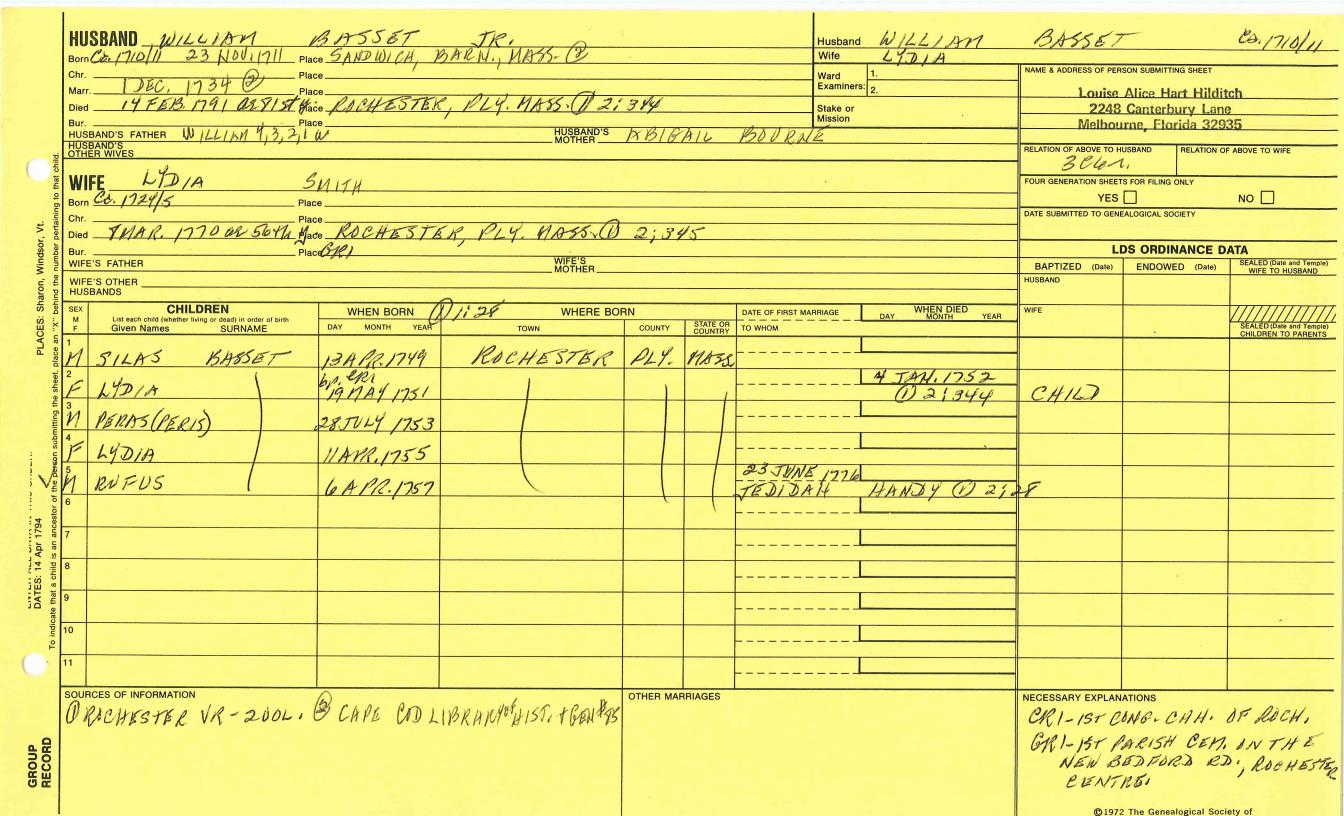 HUSBAND WILLIAM BASSET JR.
Born Ca. 1710/11 23 NOV. 1711 Place SANDWICH, BARN., MASS. ②
Chr. Place
Marr. 1 DEC. 1734 ② Place
Died 14 FEB. 1791 Place ROCHESTER, PLY. MASS. ① 2;344
Bur. Place
HUSBAND'S FATHER WILLIAM 4,3,2,1 HUSBAND'S MOTHER ABIGAIL BOURNE
HUSBAND'S OTHER WIVES
Husband WILLIAM BASSET Ca. 1710/11
Wife LYDIA
Ward Examiners: 1.
2.
Stake or Mission
NAME & ADDRESS OF PERSON SUBMITTING SHEET
Louise Alice Hart Hilditch
2248 Canterbury Lane
Melbourne, Florida 32935
RELATION OF ABOVE TO HUSBAND RELATION OF ABOVE TO WIFE
FOUR GENERATION SHEETS FOR FILING ONLY
YES NO
DATE SUBMITTED TO GENEALOGICAL SOCIETY
WIFE LYDIA SMITH
Born Ca. 1724/5 Place
Chr. Place
Died 8 MAR. 1770 or 56th y Place ROCHESTER, PLY. MASS. ① 2;345
Bur. Place GR1
WIFE'S FATHER WIFE'S MOTHER
WIFE'S OTHER HUSBANDS
LDS ORDINANCE DATA
BAPTIZED (Date) ENDOWED (Date) SEALED (Date and Temple) WIFE TO HUSBAND
HUSBAND
WIFE
SEALED (Date and Temple) CHILDREN TO PARENTS
SEX M F CHILDREN WHEN BORN ① 1;28 WHERE BORN DATE OF FIRST MARRIAGE WHEN DIED
List each child (whether living or dead) in order of birth
Given Names SURNAME DAY MONTH YEAR TOWN COUNTY STATE OR COUNTRY TO WHOM DAY MONTH YEAR
1 M SILAS BASSET 13 APR. 1749 ROCHESTER PLY. MASS.
2 F LYDIA bp. CR1 19 MAY 1751 4 JAN. 1752 ① 2;344 CHILD
3 M PERAS (PERIS) 28 JULY 1753
4 F LYDIA 11 APR. 1755
5 M RUFUS 6 APR. 1757 23 JUNE 1776
JEDIDAH HANDY ① 2;28
6
7
8
9
10
11
SOURCES OF INFORMATION
① ROCHESTER VR - 2 VOL. ② CAPE COD LIBRARY of HIST. + GEN #
OTHER MARRIAGES
NECESSARY EXPLANATIONS
CR1 - 1ST CONG. CHH. OF ROCH.
GR1 - 1ST PARISH CEM. ON THE
NEW BEDFORD RD., ROCHESTER
CENTRE.
©1972 The Genealogical Society of
PLACES: Sharon, Windsor, Vt.
DATES: 14 Apr 1794
To indicate that a child is an ancestor of the person submitting the sheet, place an "X" behind the number pertaining to that child.
GROUP RECORD